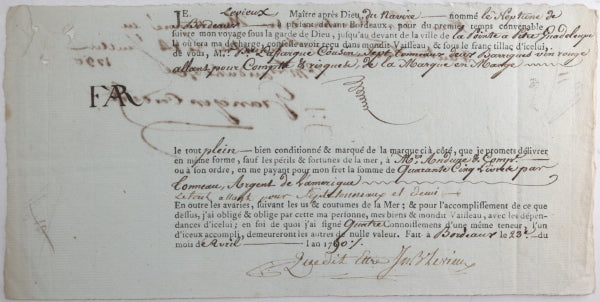 JE, Levieux Maître après Dieu, du Navire nommé le Neptune de
Bordeaux présent devant Bordeaux, pour du premier temps convenable
suivre mon voyage sous la garde de Dieu, jusqu'au devant de la ville de la Pointe a Pitre Guadeloupe
là où sera ma décharge, confesse avoir reçu dans mondit Vaisseau, & sous le franc tillac d'icelui,
de vous, M. Lafargue Cousin Sept Tonneaux Barriques vin rouge
allant pour Compte & risques de la Marque en Marge
FAR
le tout plein bien conditionné & marqué de la marque ci à côté, que je promets délivrer
en même forme, sauf les périls & fortunes de la mer, à Mrs. Anduze & Comp.
ou à son ordre, en me payant pour mon fret la somme de Quarante Cinq Livres par
tonneau, Argent de l'amerique
Le tout allant pour Sept tonneaux et demi
En outre les avaries, suivant les us & coutumes de la Mer; & pour l'accomplissement de ce que
dessus, j'ai obligé & oblige par cette ma personne, mes biens & mondit Vaisseau, avec les dépen-
dances d'icelui; en foi de quoi j'ai signé Quatre Connoissemens d'une même teneur, dont l'un
d'iceux accompli, demeureront les autres de nulle valeur. Fait à Bordeaux le 23. du
mois de Avril l'an 1790